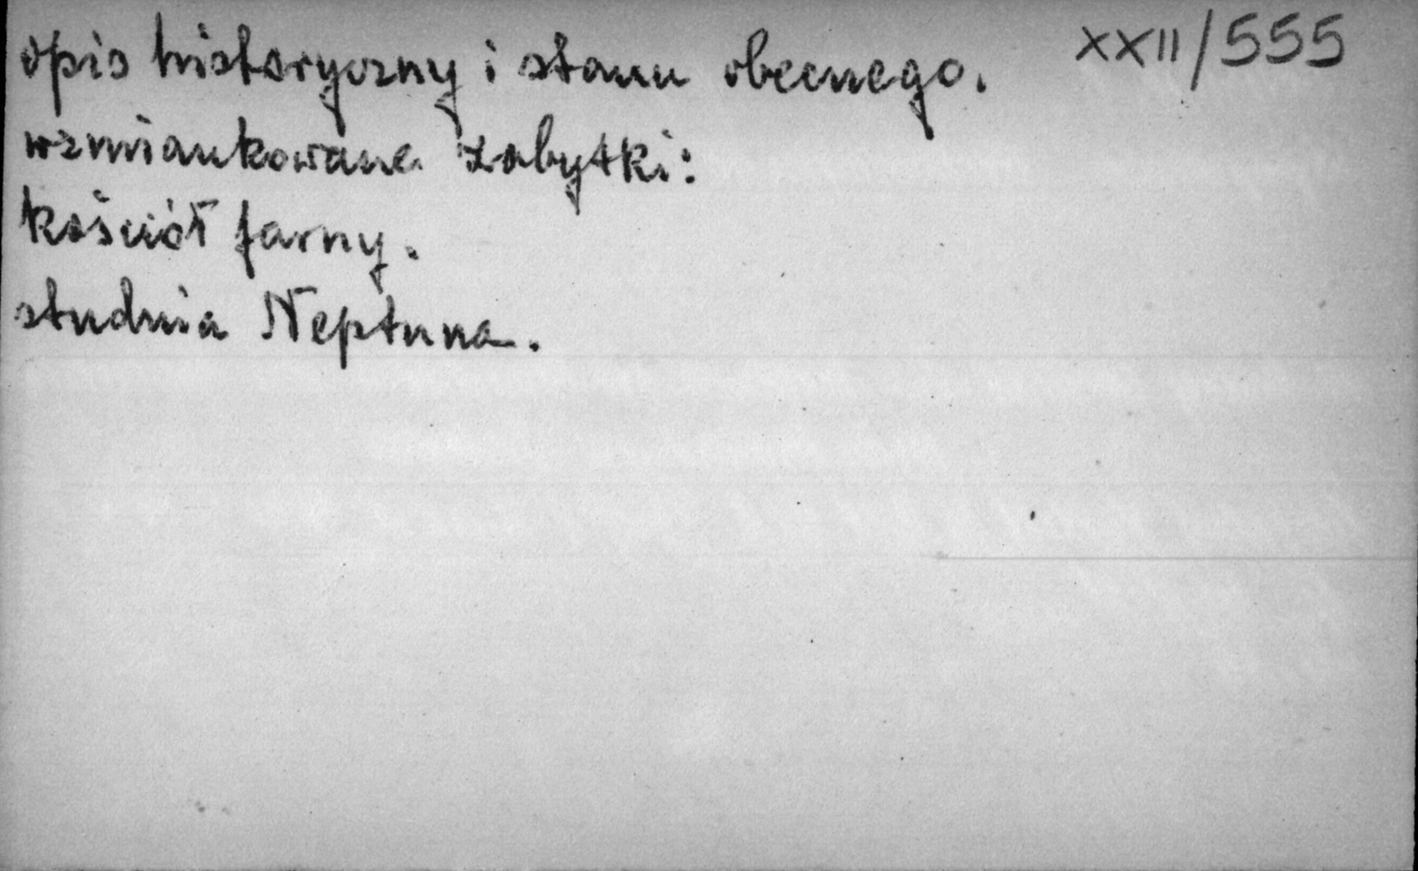 opis historyczny i stanu obecnego. XXII/555
wzmiankowane zabytki:
kościół farny.
studnia Neptuna.